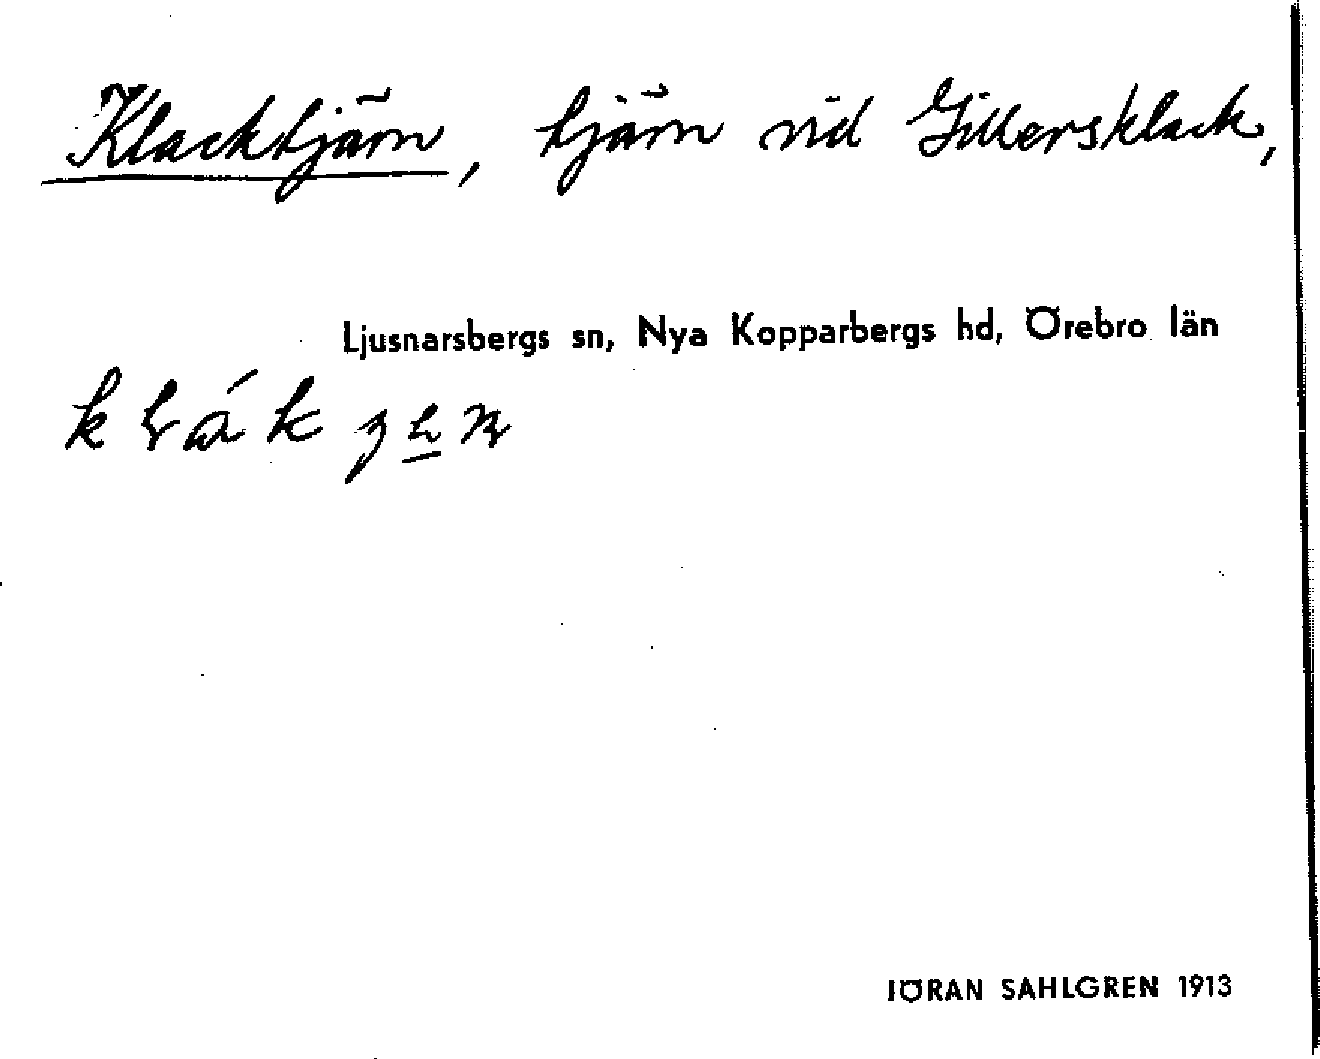 Klacktjärn, tjärn vid Gillersklack,
Ljusnarsbergs sn, Nya Kopparbergs hd, Örebro län
JÖRAN SAHLGREN 1913